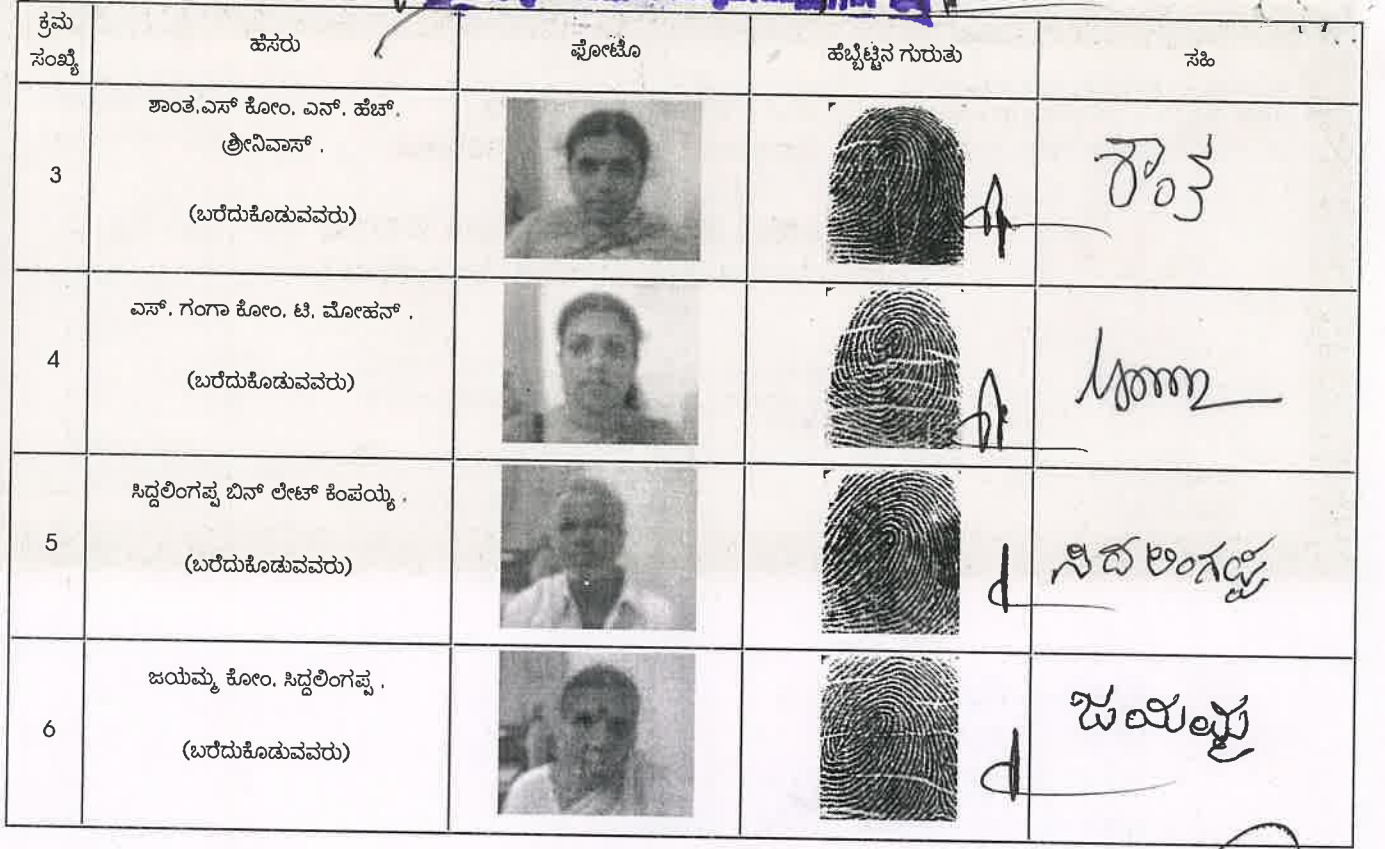 ಕ್ರಮ
ಸಂಖ್ಯೆ
ಹೆಸರು
ಫೋಟೊ
ಹೆಬ್ಬೆಟ್ಟಿನ ಗುರುತು
ಸಹಿ
3
ಶಾಂತ.ಎಸ್ ಕೋಂ. ಎನ್. ಹೆಚ್.
ಶ್ರೀನಿವಾಸ್ .
(ಬರೆದುಕೊಡುವವರು)
ಶಾಂತ
4
ಎಸ್. ಗಂಗಾ ಕೋಂ. ಟಿ. ಮೋಹನ್ .
(ಬರೆದುಕೊಡುವವರು)
5
ಸಿದ್ದಲಿಂಗಪ್ಪ ಬಿನ್ ಲೇಟ್ ಕೆಂಪಯ್ಯ .
(ಬರೆದುಕೊಡುವವರು)
ಸಿದಲಿಂಗಪ್ಪ
6
ಜಯಮ್ಮ ಕೋಂ. ಸಿದ್ದಲಿಂಗಪ್ಪ .
(ಬರೆದುಕೊಡುವವರು)
ಜಯಮ್ಮ